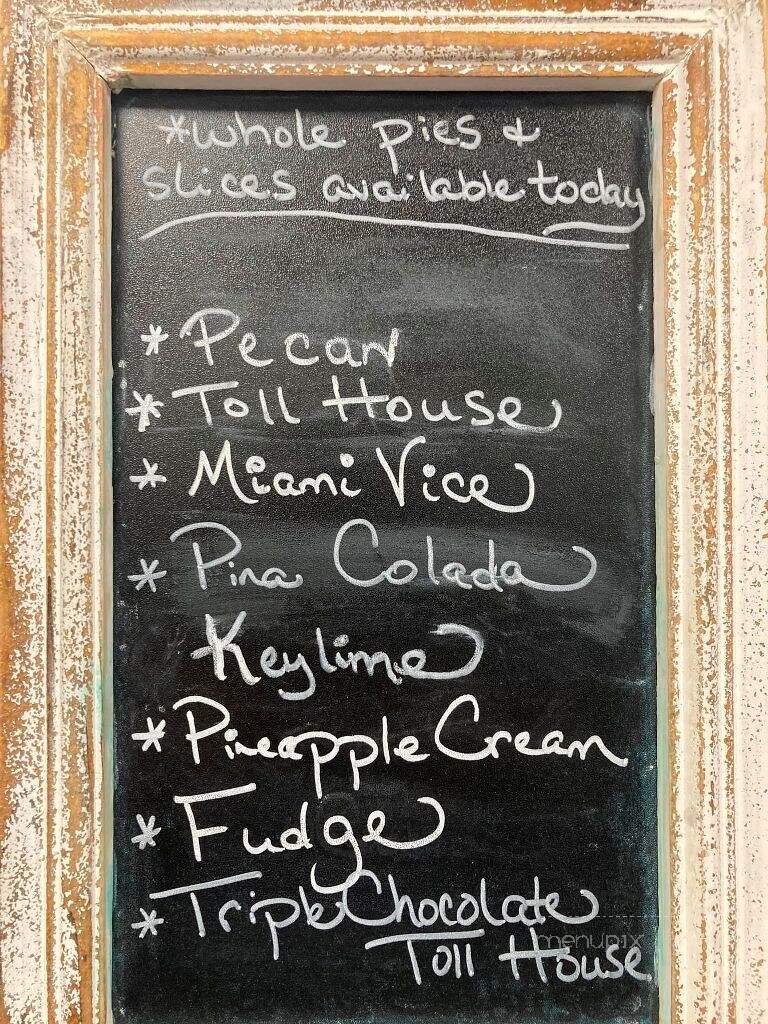 *whole pies &
slices available today
* Pecan
* Toll House
* Miami Vice
* Pina Colada
Keylime
* Pineapple Cream
* Fudge
* Triple Chocolate
Toll House
menupix